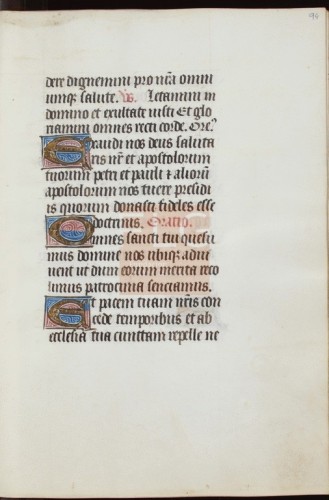 94
dere dignemini pro nr̄a omni
umq̄ salute. Vs. Letamini in
domino et exultate iusti Et glo
riamini omnes recti corde. Ore
Exaudi nos deus saluta
ris nr̄ et apostolorum
tuorum petri et pauli & aliorū
apostolorum nos tuere presidi
is quorum donasti fideles esse
doctrinis. Oratio.
Omnes sancti tui quesu
mus domine nos ubiq̄ adiu
vent ut dum eorum merita reco
limus patrocinia senciamus.
Et pacem tuam nr̄is con
cede temporibus et ab
ecclesia tua cunctam repelle ne